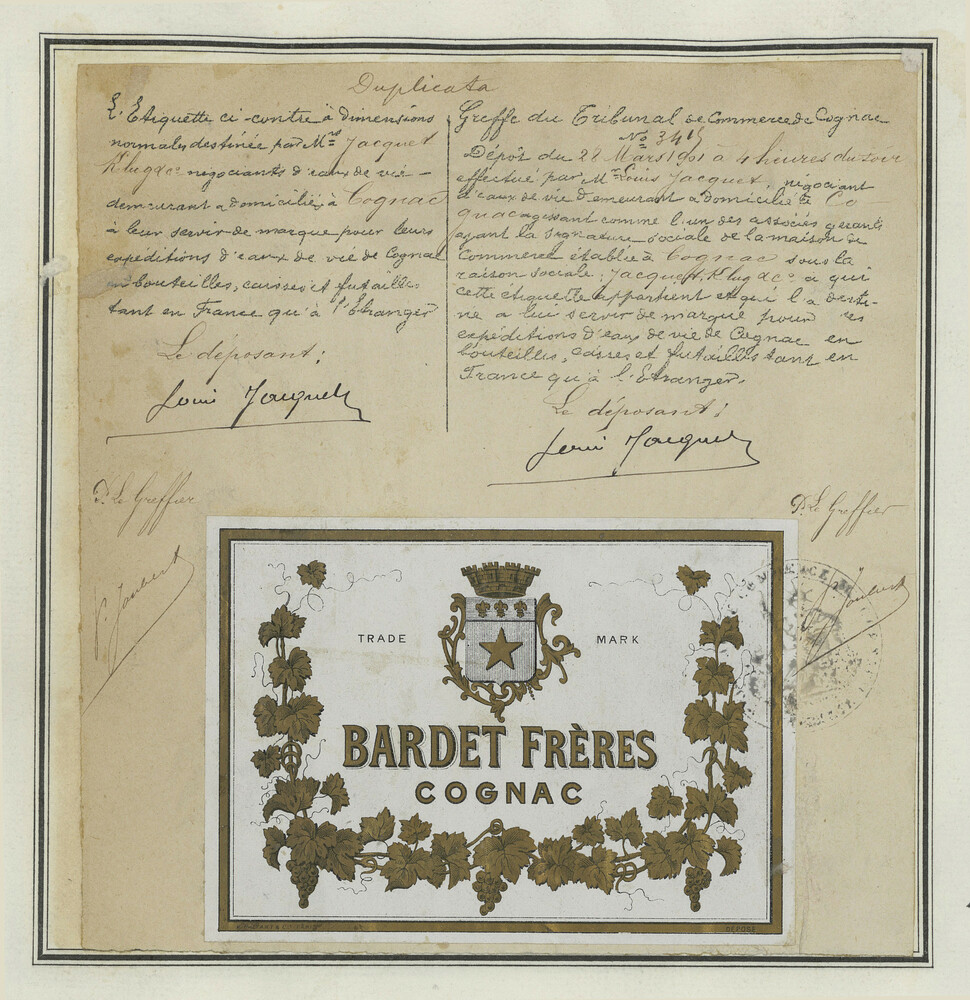 Duplicata
L'Etiquette ci-contre à dimensions
normales destinée par Mrs Jacquet
Klug & Co négociants d'eaux de vie
demeurant & domiciliés à Cognac
à leur servir de marque pour leurs
expéditions d'eaux de vie de Cognac
en bouteilles, caisses et futailles
tant en France qu'à l'Etranger
Le déposant:
Louis Jacquet
P. Le Greffier
Greffe du Tribunal de Commerce de Cognac
No 3415
Dépôt du 22 Mars 1901 à 4 heures du soir
effectué par Mr Louis Jacquet, négociant
d'eaux de vie demeurant & domicilié à Co-
gnac agissant comme l'un des associés gerants
ayant la signature sociale de la maison de
Commerce établie à Cognac sous la
raison sociale: Jacquet, Klug & Co à qui
cette étiquette appartient et qui l'a desti-
né a lui servir de marque pour ses
expéditions d'eaux de vie de Cognac en
bouteilles, caisses et futailles tant en
France qu'à l'Etranger.
Le déposant:
Louis Jacquet
P. Le Greffier
TRADE MARK
BARDET FRÈRES
COGNAC
DÉPOSÉ